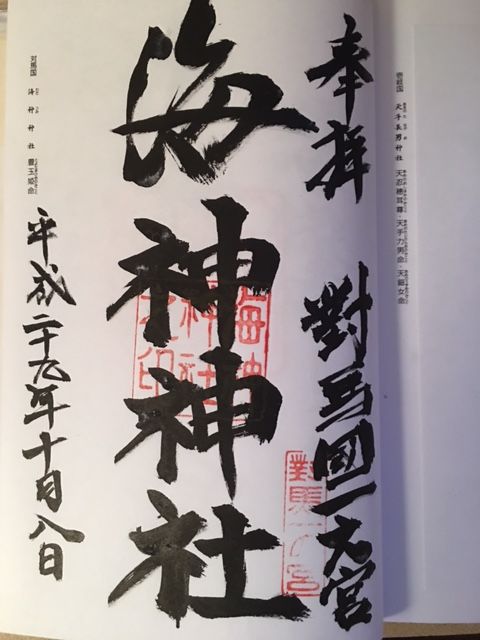 壱岐国 天手長男神社 天忍穂耳尊・天手力男命・天鈿女命
奉拝
對馬國一之宮
對馬一ノ宮
海神神社
海神神社之印
平成二十九年十月八日
対馬国 海神神社 豊玉姫命